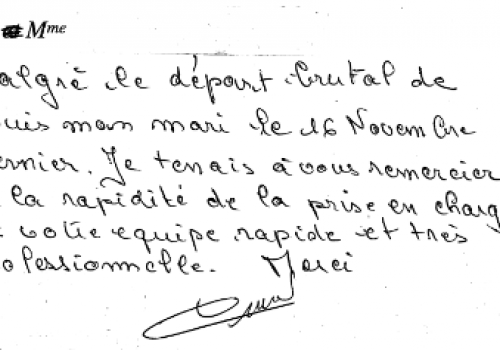 Mme
algré le départ brutal de
uis mon mari le 16 Novembre
ernier. Je tenais à vous remercier
la rapidité de la prise en charg
votre equipe rapide et très
ofessionnelle. Merci